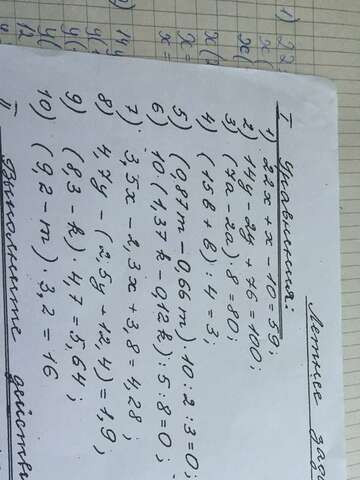 Летнее зада
I Уравнения:
1) 2,2х + х · 10 = 59;
2) 14у - 2у + 76 = 100;
3) (7а - 2а) · 8 = 80;
4) (15в + в) : 4 = 3;
5) (0,87m - 0,66m) · 10 : 2 : 3 = 0;
6) 10 · (1,37k - 0,12k) : 5 : 8 = 0;
7) 3,5х - 2,3х + 3,8 = 4,28;
8) 4,7у - (2,5у + 12,4) = 1,9;
9) (8,3 - k) · 4,7 = 5,64;
10) (9,2 - m) · 3,2 = 16
II Выполните действи